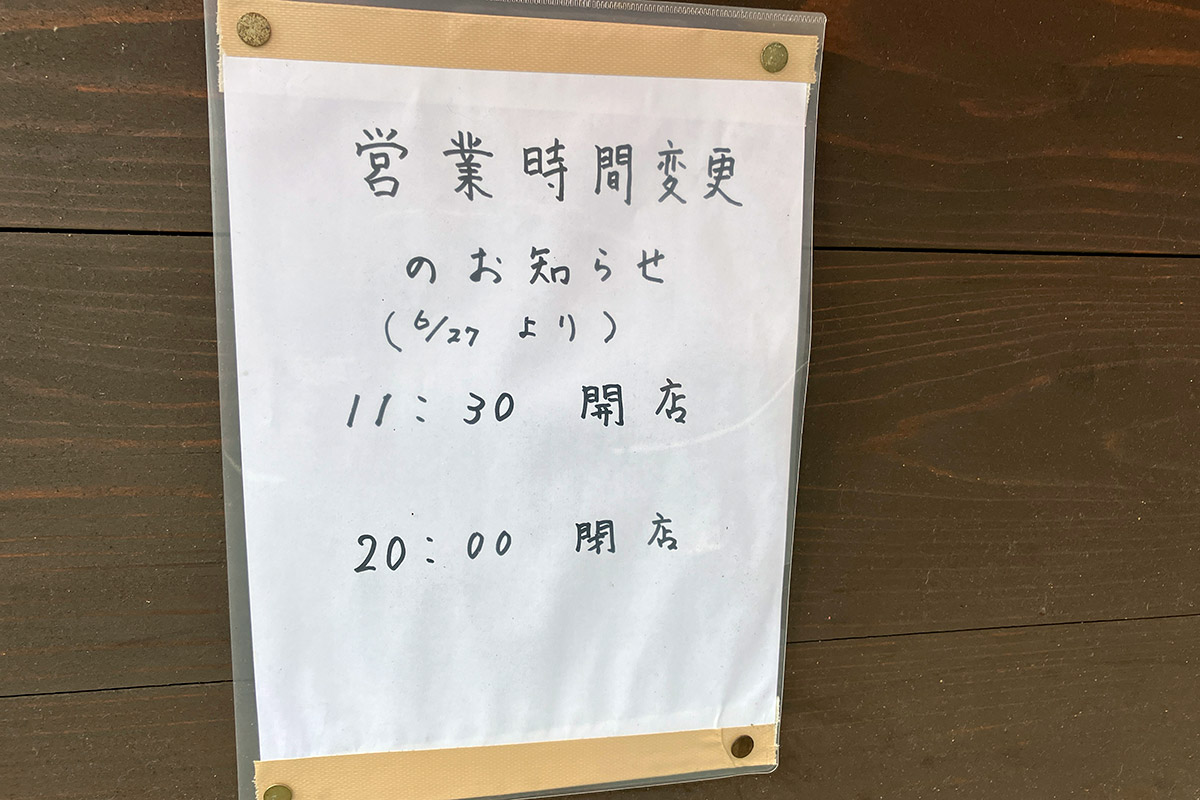 営業時間変更
のお知らせ
(6/27 より)
11:30 開店
20:00 閉店